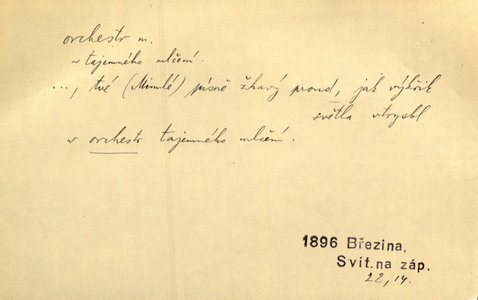 orchestr m.
~ tajemného mlčení.
..., tvé (Mimlé) písně žhavý proud, jak výkřik
světla vtryskl
v orchestr tajemného mlčení.
1896 Březina,
Svít. na záp.
22, 14.